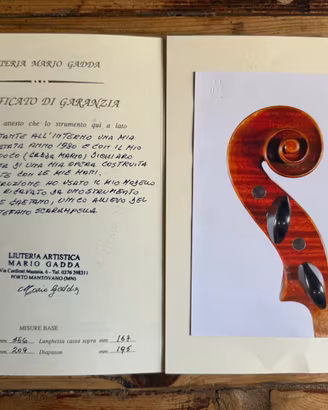 LIUTERIA MARIO GADDA
FICATO DI GARANZIA
attesto che lo strumento qui a lato
TANTE ALL'INTERNO UNA MIA
ANNO 1980 E CON IL MIO
(GADDA MARIO) DICHIARO
DI UNA MIA OPERA COSTRUITA
TE CON LE MIE MANI.
HO USATO IL MIO MODELLO
RICAVATO DA UNO STRUMENTO
GAETANO, UNICO ALLIEVO DEL
STEFANO SCARAMPELLA
LIUTERIA ARTISTICA
MARIO GADDA
Tel. 0376 398311
PORTO MANTOVANO (MN)
Mario Gadda
MISURE BASE
mm. 356 Larghezza cassa sopra mm. 163
mm. 209 Diapason mm. 195